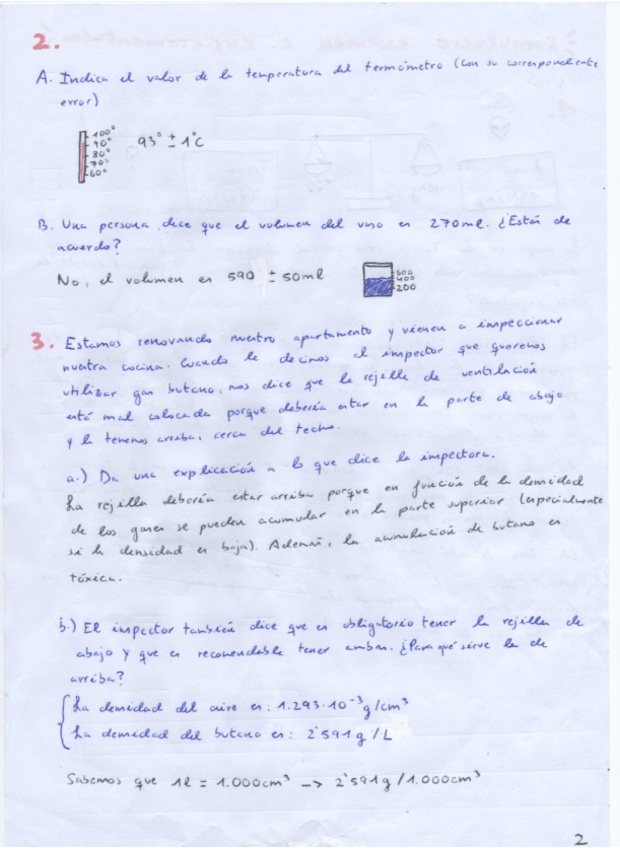 2.
A. Indica el valor de la temperatura del termómetro (con su correspondiente
error)
100°
90°
80°
70°
60°
93° ± 1°C
B. Una persona dice que el volumen del vaso es 270ml. ¿Están de
acuerdo?
No, el volumen es 590 ± 50ml
600
400
200
3. Estamos renovando nuestro apartamento y vienen a inspeccionar
nuestra cocina. Cuando le decimos al inspector que queremos
utilizar gas butano, nos dice que la rejilla de ventilación
está mal colocada porque debería estar en la parte de abajo
y la tenemos arriba, cerca del techo.
a.) Da una explicación a lo que dice la inspectora.
La rejilla debería estar arriba porque en función de la densidad
de los gases se pueden acumular en la parte superior (especialmente
si la densidad es baja). Además, la acumulación de butano es
tóxica.
b.) El inspector también dice que es obligatorio tener la rejilla de
abajo y que es recomendable tener ambas. ¿Para qué sirve la de
arriba?
La densidad del aire es: 1.293·10⁻³ g/cm³
La densidad del butano es: 2'591g/L
Sabemos que 1l = 1.000cm³ -> 2'591g/1.000cm³
2